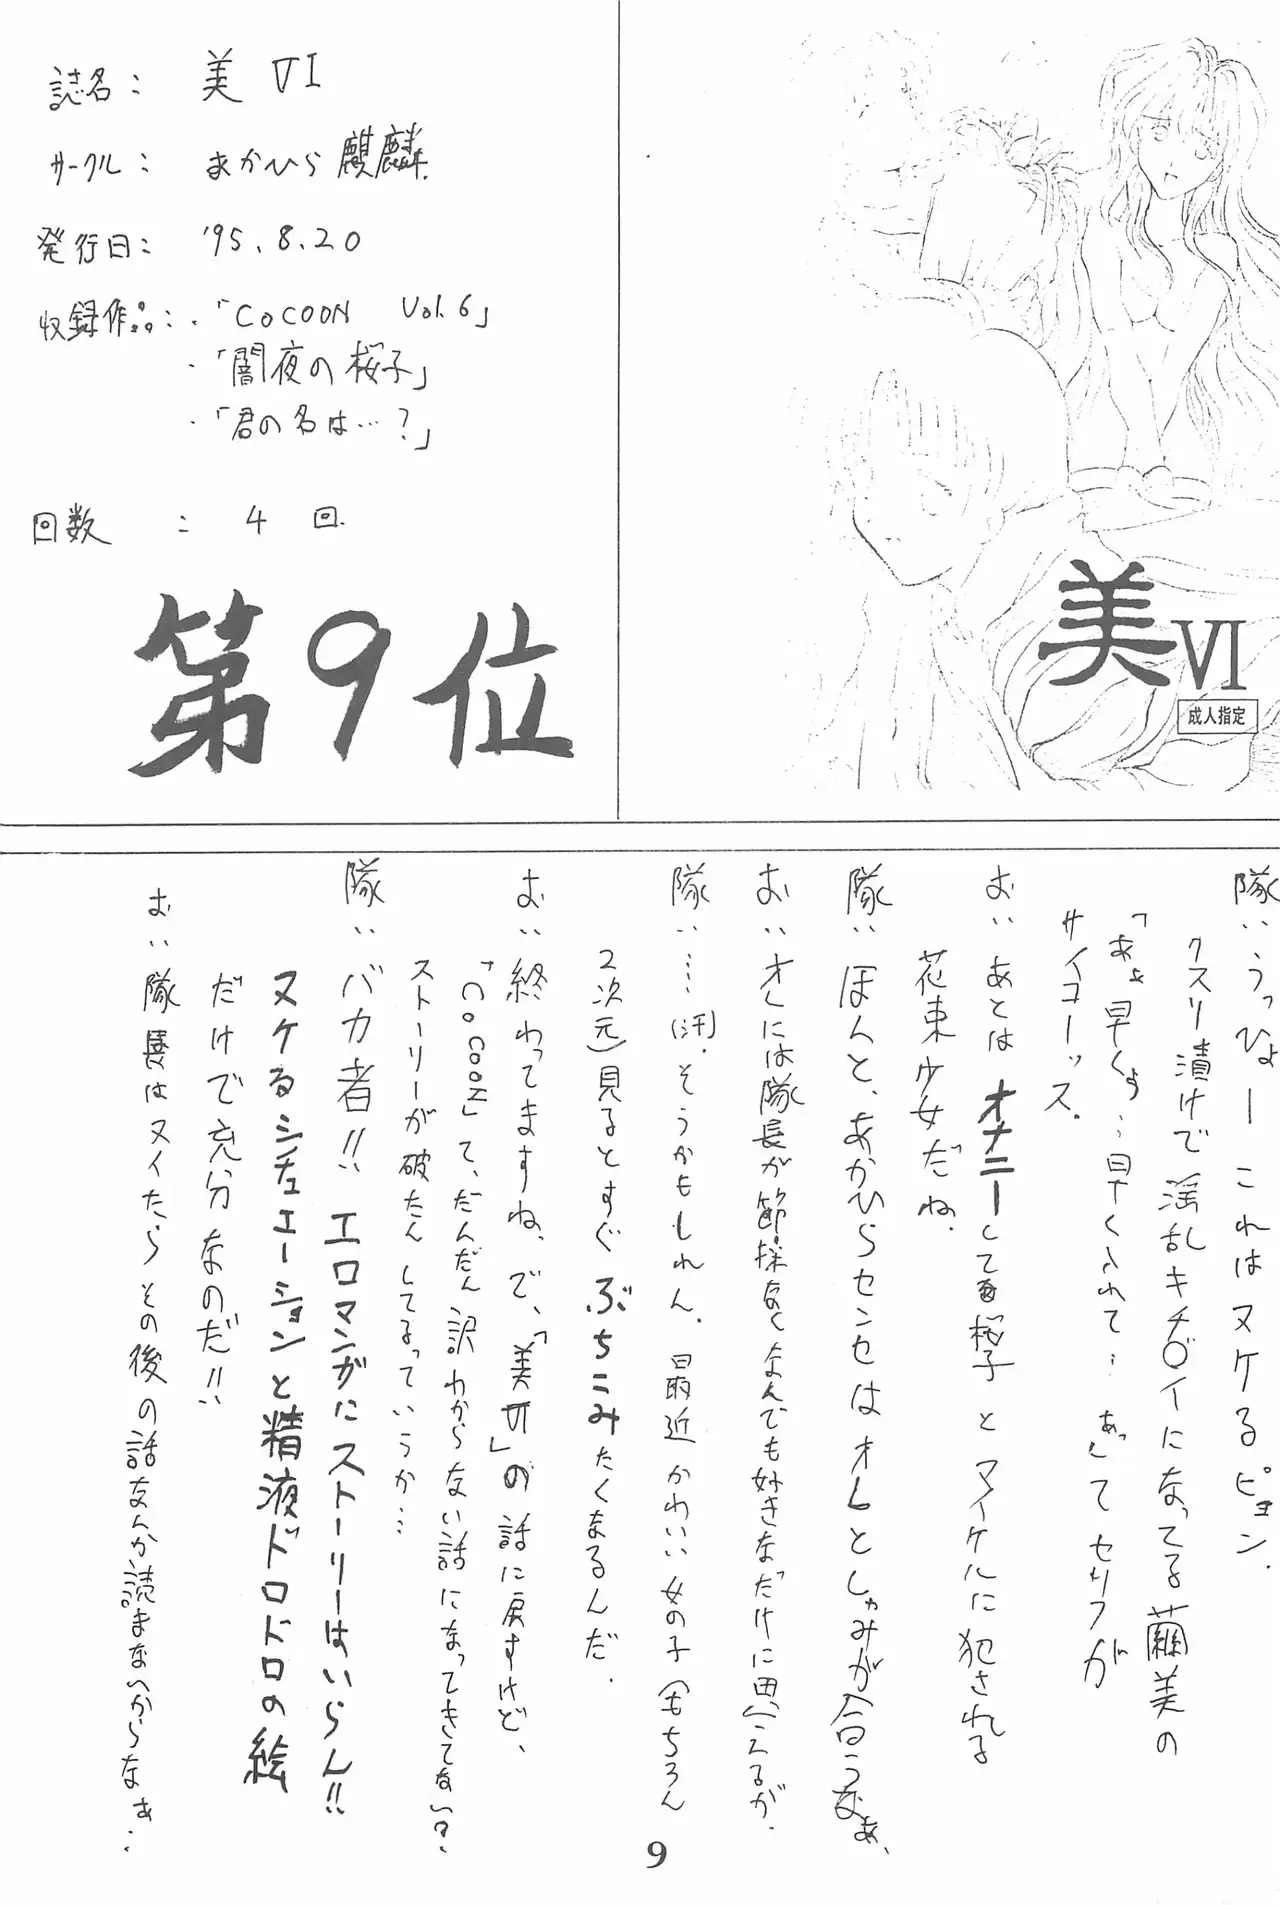 誌名: 美 VI
サークル: あかひら麒麟
発行日: '95.8.20
収録作品: ・「COCOON Vol.6」
・「闇夜の桜子」
・「君の名は…?」
回数 : 4回
第9位
美VI
成人指定
隊:うっひょー これはヌケるピョン.
クスリ漬けで淫乱キチ〇イになってる繭美の
「あぁ早くぅ…早く入れて… あっ」てセリフが
サイコーッス.
お:あとはオナニーしてる桜子とマイケルに犯される
花束少女だね.
隊:ほんと、あかひらセンセはオレとしゅみが合うなぁ、
お:オレには隊長が節操なくなんでも好きなだけに思(えるが.
隊:…(汗).そうかもしれん. 最近かわいい女の子(もちろん
2次元)見るとすぐぶちこみたくなるんだ.
お:終わってますね、で、「美VI」の話に戻すけど、
「COCOON」て、だんだん訳わからない話になってきてない?
ストーリーが破たんしてるっていうか…
隊:バカ者!! エロマンガにストーリーはいらん!!
ヌケるシチュエーションと精液ドロドロの絵
だけで充分なのだ!!
お:隊長はヌイたらその後の話なんか読まないからなぁ…
9